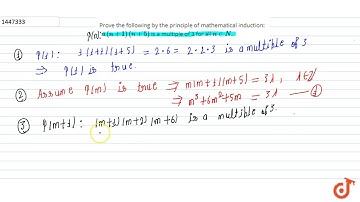 1447333
Prove the following by the principle of mathematical induction:
P(n): n(n + 1)(n + 5) is a multiple of 3 for all n ∈ N.
① P(1): 1(1+1)(1+5) = 2·6 = 2·2·3 is a multiple of 3
⇒ P(1) is true.
② Assume P(m) is true ⇒ m(m+1)(m+5) = 3λ, λ∈Z
⇒ m³+6m²+5m = 3λ —①
③ P(m+1): (m+1)(m+2)(m+6) is a multiple of 3.